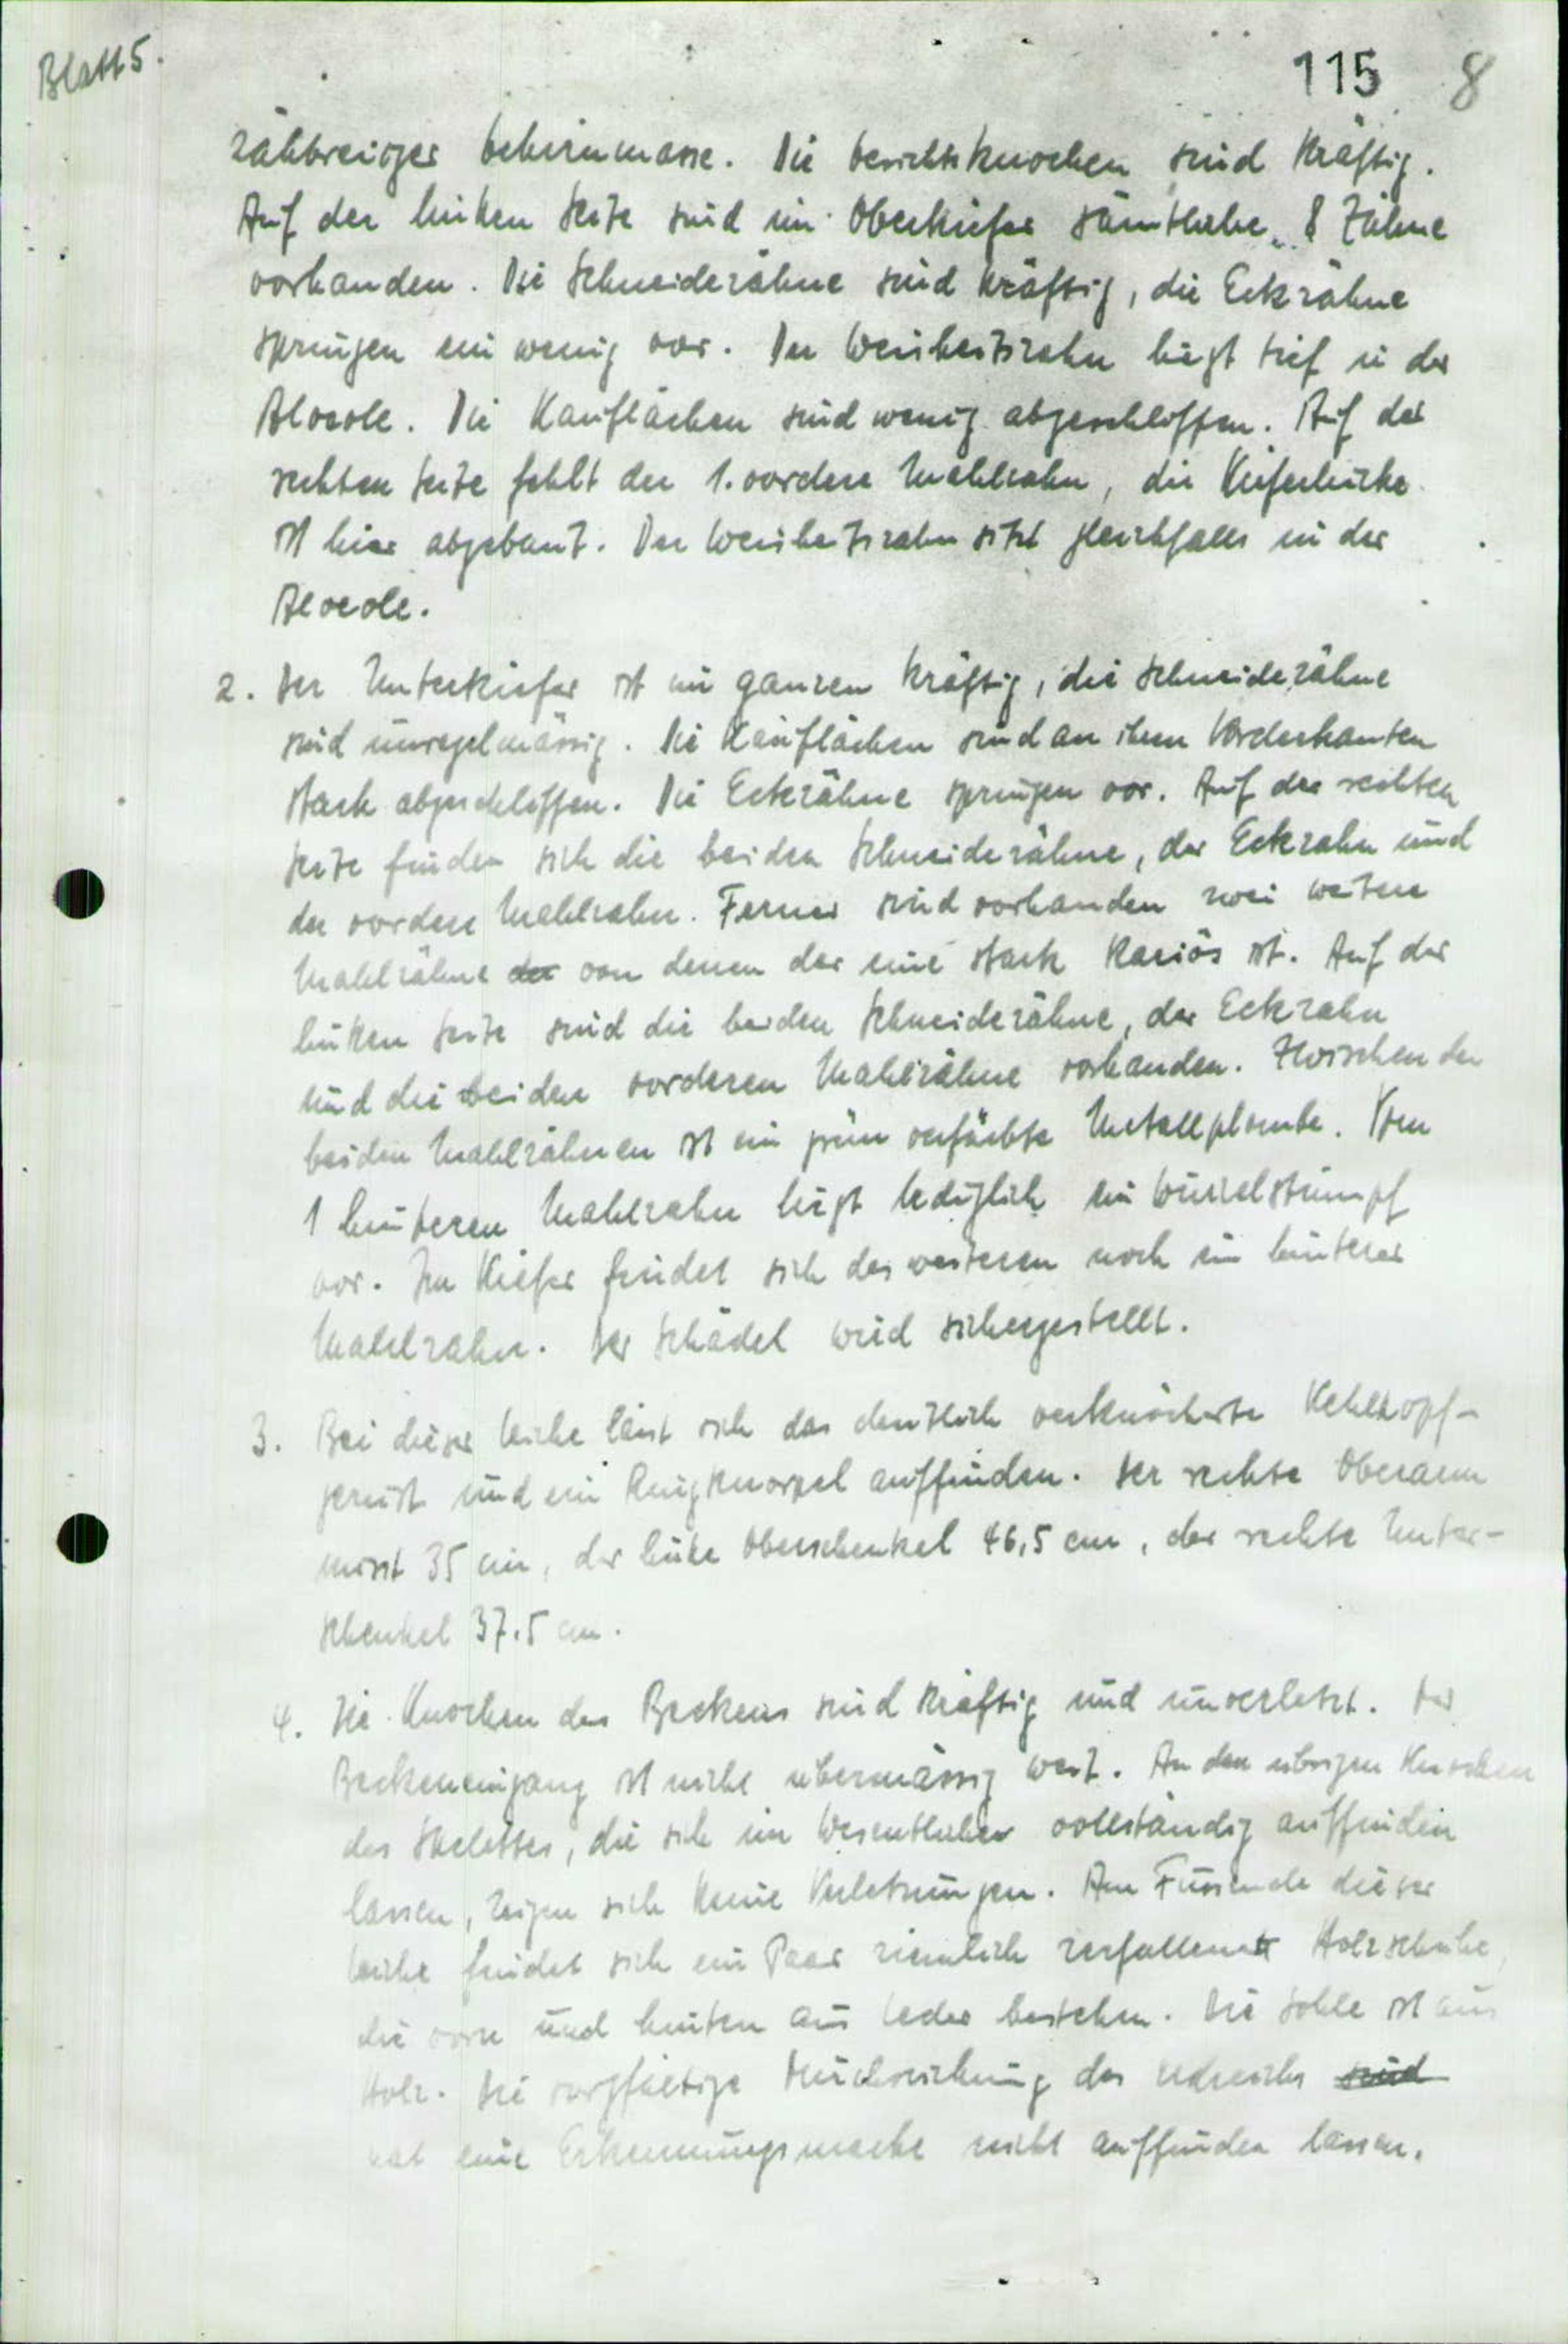 Blatt 5.
115 8
zähbreiiger Gehirnmasse. Die Gesichtsknochen sind kräftig.
Auf der linken Seite sind im Oberkiefer sämtliche 8 Zähne
vorhanden. Die Schneidezähne sind kräftig, die Eckzähne
springen ein wenig vor. Der Weisheitszahn liegt tief in der
Alveole. Die Kauflächen sind wenig abgeschliffen. Auf der
rechten Seite fehlt der 1. vordere Mahlzahn, die Kieferlücke
ist hier abgebaut. Der Weisheitszahn sitzt gleichfalls in der
Alveole.
2. Der Unterkiefer ist im ganzen kräftig, die Schneidezähne
sind unregelmässig. Die Kauflächen sind an ihren Vorderkanten
stark abgeschliffen. Die Eckzähne springen vor. Auf der rechten
Seite finden sich die beiden Schneidezähne, der Eckzahn und
der vordere Mahlzahn. Ferner sind vorhanden zwei weitere
Mahlzähne der von denen der eine stark kariös ist. Auf der
linken Seite sind die beiden Schneidezähne, der Eckzahn
und die beiden vorderen Mahlzähne vorhanden. Zwischen den
beiden Mahlzähnen ist ein grün verfärbte Metallplombe. Vom
1 hinteren Mahlzahn liegt lediglich ein Wurzelstumpf
vor. Im Kiefer findet sich des weiteren noch ein hinterer
Mahlzahn. Der Schädel wird sichergestellt.
3. Bei dieser Leiche lässt sich das deutlich verknöcherte Kehlkopf-
gerüst und ein Ringknorpel auffinden. Der rechte Oberarm
misst 35 cm, der linke Oberschenkel 46,5 cm, der rechte Unter-
schenkel 37.5 cm.
4. Die Knochen des Beckens sind kräftig und unverletzt. Der
Beckeneingang ist nicht übermässig weit. An den übrigen Knochen
des Skelettes, die sich im Wesentlichen vollständig auffinden
lassen, zeigen sich keine Verletzungen. Am Fussende dieser
Leiche findet sich ein Paar ziemlich zerfallener Holzschuhe,
die vorn und hinten aus Leder bestehen. Die Sohle ist aus
Holz. Die sorgfältige Durchsuchung des Erdreichs sind
hat eine Erkennungsmarke nicht auffinden lassen.